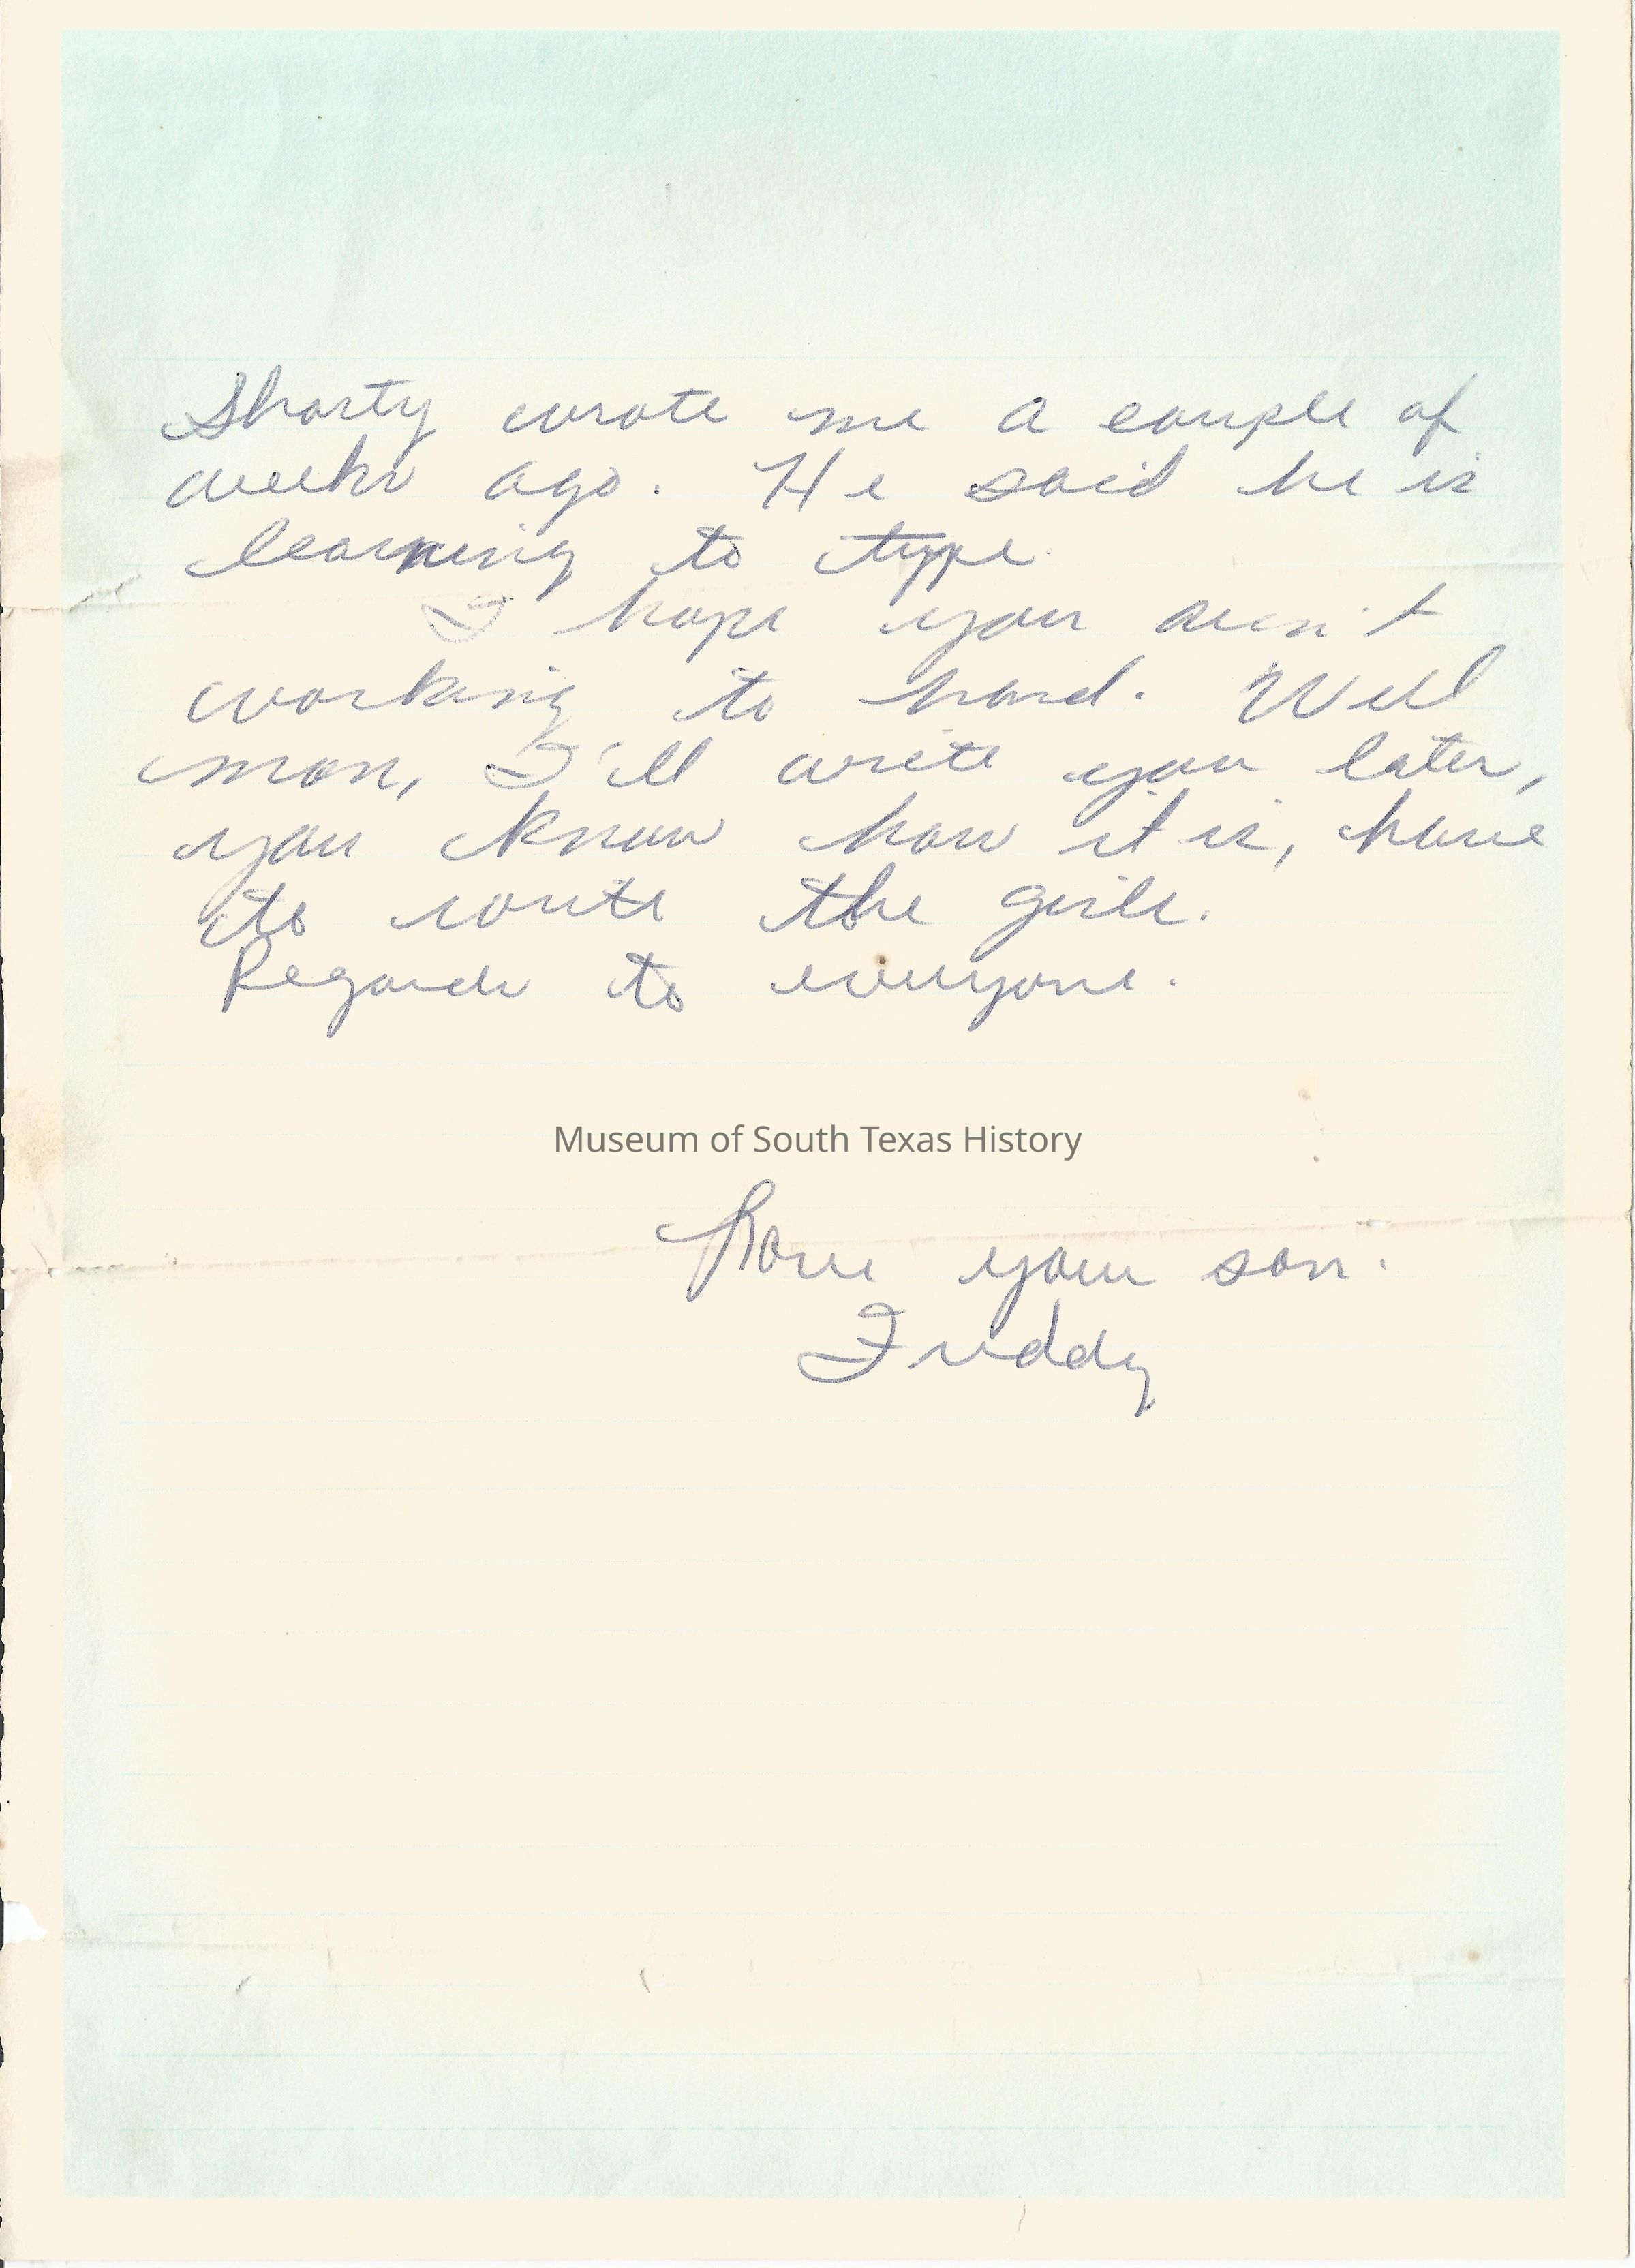 Shorty wrote me a couple of
weeks ago. He said he is
learning to type.
I hope you aren't
working to hard. Well
mom, I'll write you later,
you know how it is, have
to write the girls.
Regards to everyone.
Museum of South Texas History
Love your son.
Freddy